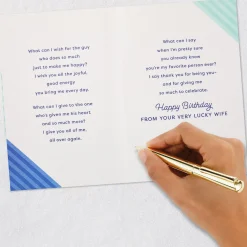 What can I wish for the guy
who does so much
just to make me happy?
I wish you all the joyful,
good energy
you bring me every day.
What can I give to the one
who's given me his heart
and so much more?
I give you all of me,
all over again.
What can I say
when I'm pretty sure
you already know
you're my favorite person ever?
I say thank you for being you–
and for giving me
so much to celebrate.
Happy Birthday
FROM YOUR VERY LUCKY WIFE